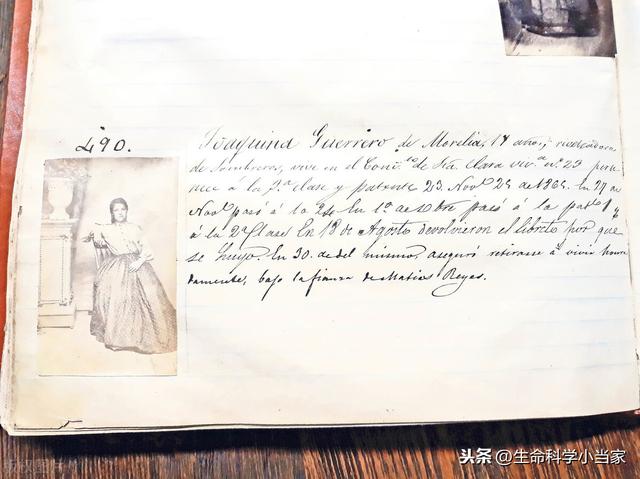 490.
Joaquina Guerrero de Morelia, 17 años,
de Sombreros, vive en el Conv.to de Sta. Clara viv.a n.o 29 perte
nece á la 2.a clase y patente 23. Nov.e 24 de 1865. En 27 de
Nov.e pasó á la 2.a En 1.o de pasó á la
á la 2.a Clase En 18 de Agosto devolvieron el libreto por que
se fugo. En 30. de del mismo, aseguró retirarse á vivir honra
damente, bajo la fianza de Matias Reyes.
头条 @生命科学小当家